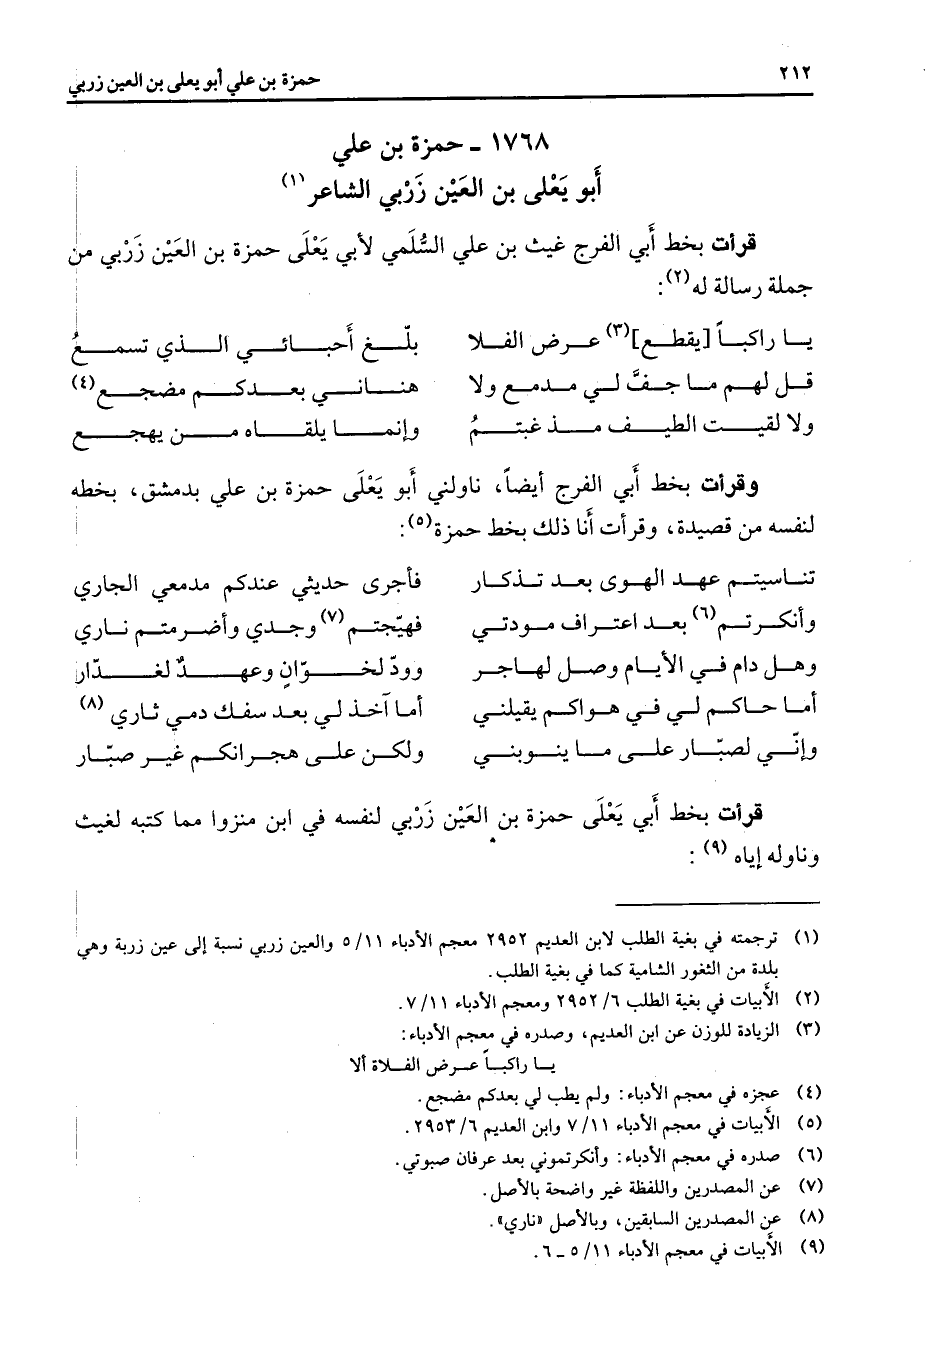 ٢١٢ حمزة بن علي أبو يعلى بن العين زربي
١٧٦٨ ـ حمزة بن علي
أبو يَعْلى بن العَيْن زَرْبي الشاعر (١)
قرأت بخط أبي الفرج غيث بن علي السُّلَمي لأبي يَعْلَى حمزة بن العَيْن زَرْبي من
جملة رسالة له (٢):
يا راكباً [يقطع] (٣) عرض الفلا بلّغ أحبائي الذي تسمعُ
قل لهم ما جفَّ لي مدمع ولا هناني بعدكم مضجع (٤)
ولا لقيت الطيف مذ غبتمُ وإنما يلقاه من يهجع
وقرأت بخط أبي الفرج أيضاً، ناولني أبو يَعْلَى حمزة بن علي بدمشق، بخطه
لنفسه من قصيدة، وقرأت أنا ذلك بخط حمزة (٥):
تناسيتم عهد الهوى بعد تذكار فأجرى حديثي عندكم مدمعي الجاري
وأنكرتم (٦) بعد اعتراف مودتي فهيّجتم (٧) وجدي وأضرمتم ناري
وهل دام في الأيام وصل لهاجر وودّ لخوّانٍ وعهدٌ لغدّار
أما حاكم لي في هواكم يقيلني أما آخذ لي بعد سفك دمي ثاري (٨)
وإنّي لصبّار على ما ينوبني ولكن على هجرانكم غير صبّار
قرأت بخط أبي يَعْلَى حمزة بن العَيْن زَرْبي لنفسه في ابن منزوا مما كتبه لغيث
وناوله إياه (٩) :
(١) ترجمته في بغية الطلب لابن العديم ٢٩٥٢ معجم الأدباء ١١/ ٥ والعين زربي نسبة إلى عين زربة وهي
بلدة من الثغور الشامية كما في بغية الطلب.
(٢) الأبيات في بغية الطلب ٦/ ٢٩٥٢ ومعجم الأدباء ١١/ ٧.
(٣) الزيادة للوزن عن ابن العديم، وصدره في معجم الأدباء:
يا راكباً عرض الفلاة ألا
(٤) عجزه في معجم الأدباء: ولم يطب لي بعدكم مضجع.
(٥) الأبيات في معجم الأدباء ١١/ ٧ وابن العديم ٦/ ٢٩٥٣.
(٦) صدره في معجم الأدباء: وأنكرتموني بعد عرفان صبوتي.
(٧) عن المصدرين واللفظة غير واضحة بالأصل.
(٨) عن المصدرين السابقين، وبالأصل «ناري».
(٩) الأبيات في معجم الأدباء ١١/ ٥ ـ ٦.